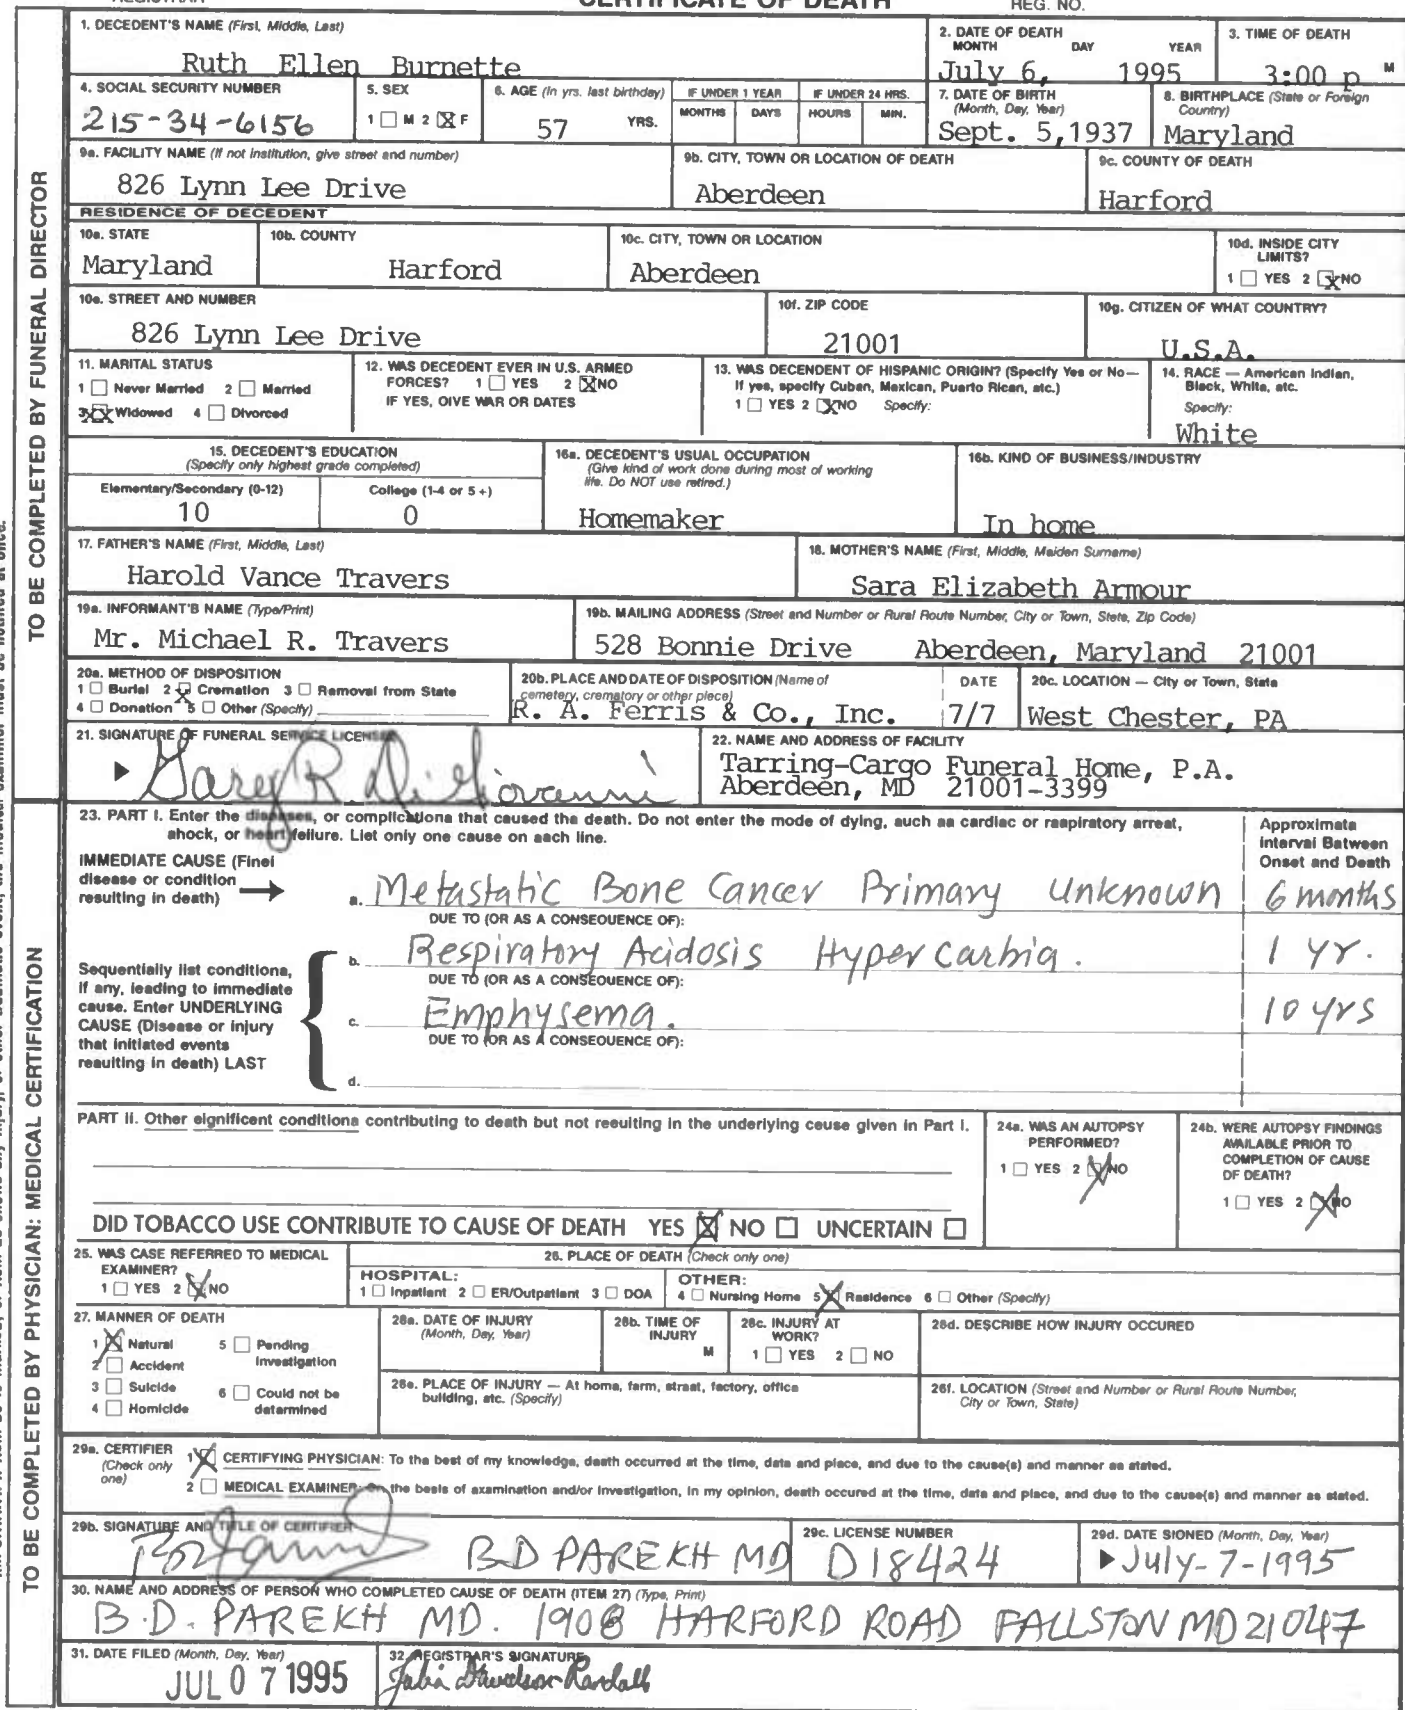 CERTIFICATE OF DEATH
REG. NO.
TO BE COMPLETED BY FUNERAL DIRECTOR
1. DECEDENT'S NAME (First, Middle, Last)
Ruth Ellen Burnette
2. DATE OF DEATH
MONTH DAY YEAR
July 6, 1995
3. TIME OF DEATH
3:00 p M
4. SOCIAL SECURITY NUMBER
215-34-6156
5. SEX
1 ☐ M 2 ☒ F
6. AGE (In yrs. last birthday)
57 YRS.
IF UNDER 1 YEAR
MONTHS DAYS
IF UNDER 24 HRS.
HOURS MIN.
7. DATE OF BIRTH
(Month, Day, Year)
Sept. 5,1937
8. BIRTHPLACE (State or Foreign
Country)
Maryland
9a. FACILITY NAME (If not institution, give street and number)
826 Lynn Lee Drive
9b. CITY, TOWN OR LOCATION OF DEATH
Aberdeen
9c. COUNTY OF DEATH
Harford
RESIDENCE OF DECEDENT
10a. STATE
Maryland
10b. COUNTY
Harford
10c. CITY, TOWN OR LOCATION
Aberdeen
10d. INSIDE CITY
LIMITS?
1 ☐ YES 2 ☒ NO
10e. STREET AND NUMBER
826 Lynn Lee Drive
10f. ZIP CODE
21001
10g. CITIZEN OF WHAT COUNTRY?
U.S.A.
11. MARITAL STATUS
1 ☐ Never Married 2 ☐ Married
3 ☒ Widowed 4 ☐ Divorced
12. WAS DECEDENT EVER IN U.S. ARMED
FORCES? 1 ☐ YES 2 ☒ NO
IF YES, GIVE WAR OR DATES
13. WAS DECENDENT OF HISPANIC ORIGIN? (Specify Yes or No—
If yes, specify Cuban, Mexican, Puerto Rican, etc.)
1 ☐ YES 2 ☒ NO Specify:
14. RACE — American Indian,
Black, White, etc.
Specify:
White
15. DECEDENT'S EDUCATION
(Specify only highest grade completed)
Elementary/Secondary (0-12)
10
College (1-4 or 5+)
0
16a. DECEDENT'S USUAL OCCUPATION
(Give kind of work done during most of working
life. Do NOT use retired.)
Homemaker
16b. KIND OF BUSINESS/INDUSTRY
In home
17. FATHER'S NAME (First, Middle, Last)
Harold Vance Travers
18. MOTHER'S NAME (First, Middle, Maiden Surname)
Sara Elizabeth Armour
19a. INFORMANT'S NAME (Type/Print)
Mr. Michael R. Travers
19b. MAILING ADDRESS (Street and Number or Rural Route Number, City or Town, State, Zip Code)
528 Bonnie Drive Aberdeen, Maryland 21001
20a. METHOD OF DISPOSITION
1 ☐ Burial 2 ☒ Cremation 3 ☐ Removal from State
4 ☐ Donation 5 ☐ Other (Specify)
20b. PLACE AND DATE OF DISPOSITION (Name of
cemetery, crematory or other place)
R. A. Ferris & Co., Inc.
DATE
7/7
20c. LOCATION — City or Town, State
West Chester, PA
21. SIGNATURE OF FUNERAL SERVICE LICENSEE
Gary R. DiGiovanni
22. NAME AND ADDRESS OF FACILITY
Tarring-Cargo Funeral Home, P.A.
Aberdeen, MD 21001-3399
TO BE COMPLETED BY PHYSICIAN: MEDICAL CERTIFICATION
23. PART I. Enter the diseases, or complications that caused the death. Do not enter the mode of dying, such as cardiac or respiratory arrest,
shock, or heart failure. List only one cause on each line.
Approximate
Interval Between
Onset and Death
IMMEDIATE CAUSE (Final
disease or condition
resulting in death)
a. Metastatic Bone Cancer Primary Unknown 6 months
DUE TO (OR AS A CONSEQUENCE OF):
b. Respiratory Acidosis Hypercarbia. 1 yr.
DUE TO (OR AS A CONSEQUENCE OF):
Sequentially list conditions,
if any, leading to immediate
cause. Enter UNDERLYING
CAUSE (Disease or injury
that initiated events
resulting in death) LAST
c. Emphysema. 10 yrs
DUE TO (OR AS A CONSEQUENCE OF):
d.
PART II. Other significant conditions contributing to death but not resulting in the underlying cause given in Part I.
24a. WAS AN AUTOPSY
PERFORMED?
1 ☐ YES 2 ☒ NO
24b. WERE AUTOPSY FINDINGS
AVAILABLE PRIOR TO
COMPLETION OF CAUSE
OF DEATH?
1 ☐ YES 2 ☒ NO
DID TOBACCO USE CONTRIBUTE TO CAUSE OF DEATH YES ☒ NO ☐ UNCERTAIN ☐
25. WAS CASE REFERRED TO MEDICAL
EXAMINER?
1 ☐ YES 2 ☒ NO
26. PLACE OF DEATH (Check only one)
HOSPITAL:
1 ☐ Inpatient 2 ☐ ER/Outpatient 3 ☐ DOA
OTHER:
4 ☐ Nursing Home 5 ☒ Residence 6 ☐ Other (Specify)
27. MANNER OF DEATH
1 ☒ Natural 5 ☐ Pending
Investigation
2 ☐ Accident
3 ☐ Suicide 6 ☐ Could not be
determined
4 ☐ Homicide
28a. DATE OF INJURY
(Month, Day, Year)
28b. TIME OF
INJURY
M
28c. INJURY AT
WORK?
1 ☐ YES 2 ☐ NO
28d. DESCRIBE HOW INJURY OCCURED
28e. PLACE OF INJURY — At home, farm, street, factory, office
building, etc. (Specify)
28f. LOCATION (Street and Number or Rural Route Number,
City or Town, State)
29a. CERTIFIER
(Check only
one)
1 ☒ CERTIFYING PHYSICIAN: To the best of my knowledge, death occurred at the time, date and place, and due to the cause(s) and manner as stated.
2 ☐ MEDICAL EXAMINER: On the basis of examination and/or investigation, in my opinion, death occured at the time, date and place, and due to the cause(s) and manner as stated.
29b. SIGNATURE AND TITLE OF CERTIFIER
B.D PAREKH MD
29c. LICENSE NUMBER
D18424
29d. DATE SIGNED (Month, Day, Year)
July-7-1995
30. NAME AND ADDRESS OF PERSON WHO COMPLETED CAUSE OF DEATH (ITEM 27) (Type, Print)
B.D. PAREKH MD. 1908 HARFORD ROAD FALLSTON MD 21047
31. DATE FILED (Month, Day, Year)
JUL 07 1995
32. REGISTRAR'S SIGNATURE